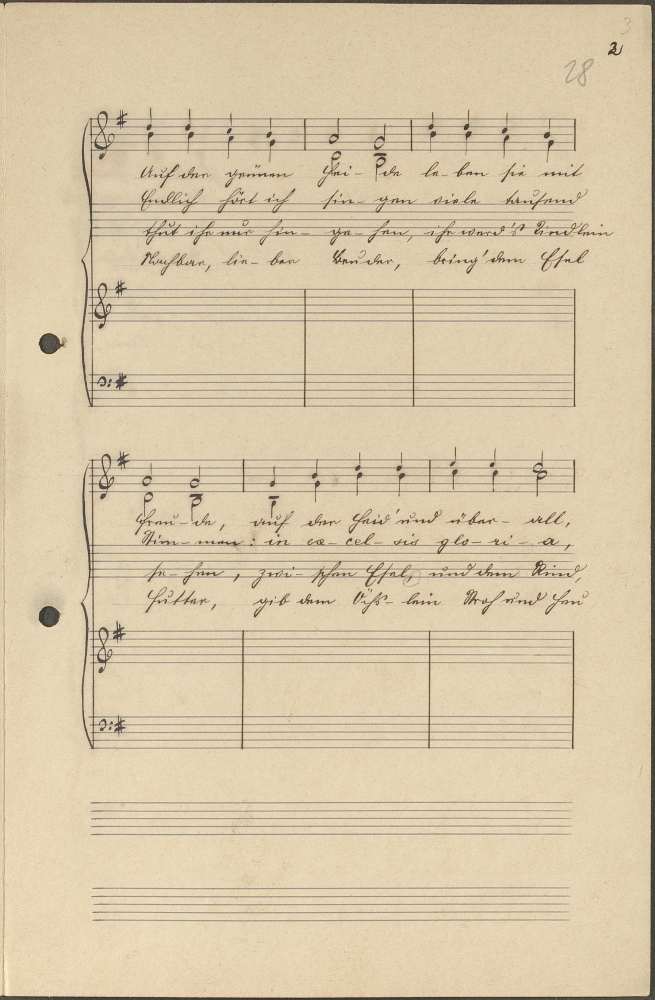 3
2
28
Auf der grünen Hei- de le- ben sie mit
Endlich hört ich sin- gen viele tausend
thut ihr nur hin- ge- hen, ihr werd's Kindlein
Nachbar, lie- ber Bruder, bring' dem Esel
Freu- de, auf der Heid' und über- all,
Stim- men: in ex- cel- sis glo- ri- a,
se- hen, zwi- schen Esel, und dem Rind,
Futter, gib dem Öchs- lein Stroh und Heu